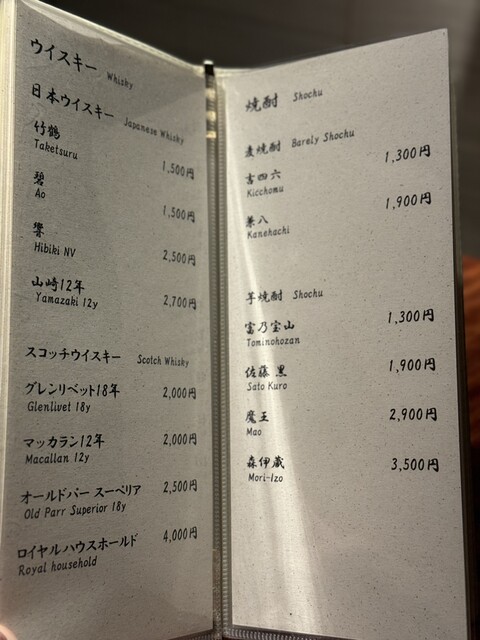 ウイスキー Whisky
日本ウイスキー Japanese Whisky
竹鶴 1,500円
Taketsuru
碧 1,500円
Ao
響 2,500円
Hibiki NV
山崎12年 2,700円
Yamazaki 12y
スコッチウイスキー Scotch Whisky
グレンリベット18年 2,000円
Glenlivet 18y
マッカラン12年 2,000円
Macallan 12y
オールドパー スーペリア 2,500円
Old Parr Superior 18y
ロイヤルハウスホールド 4,000円
Royal household
焼酎 Shochu
麦焼酎 Barely Shochu
吉四六 1,300円
Kicchomu
兼八 1,900円
Kanehachi
芋焼酎 Shochu
富乃宝山 1,300円
Tominohozan
佐藤 黒 1,900円
Sato Kuro
魔王 2,900円
Mao
森伊蔵 3,500円
Mori-Izo